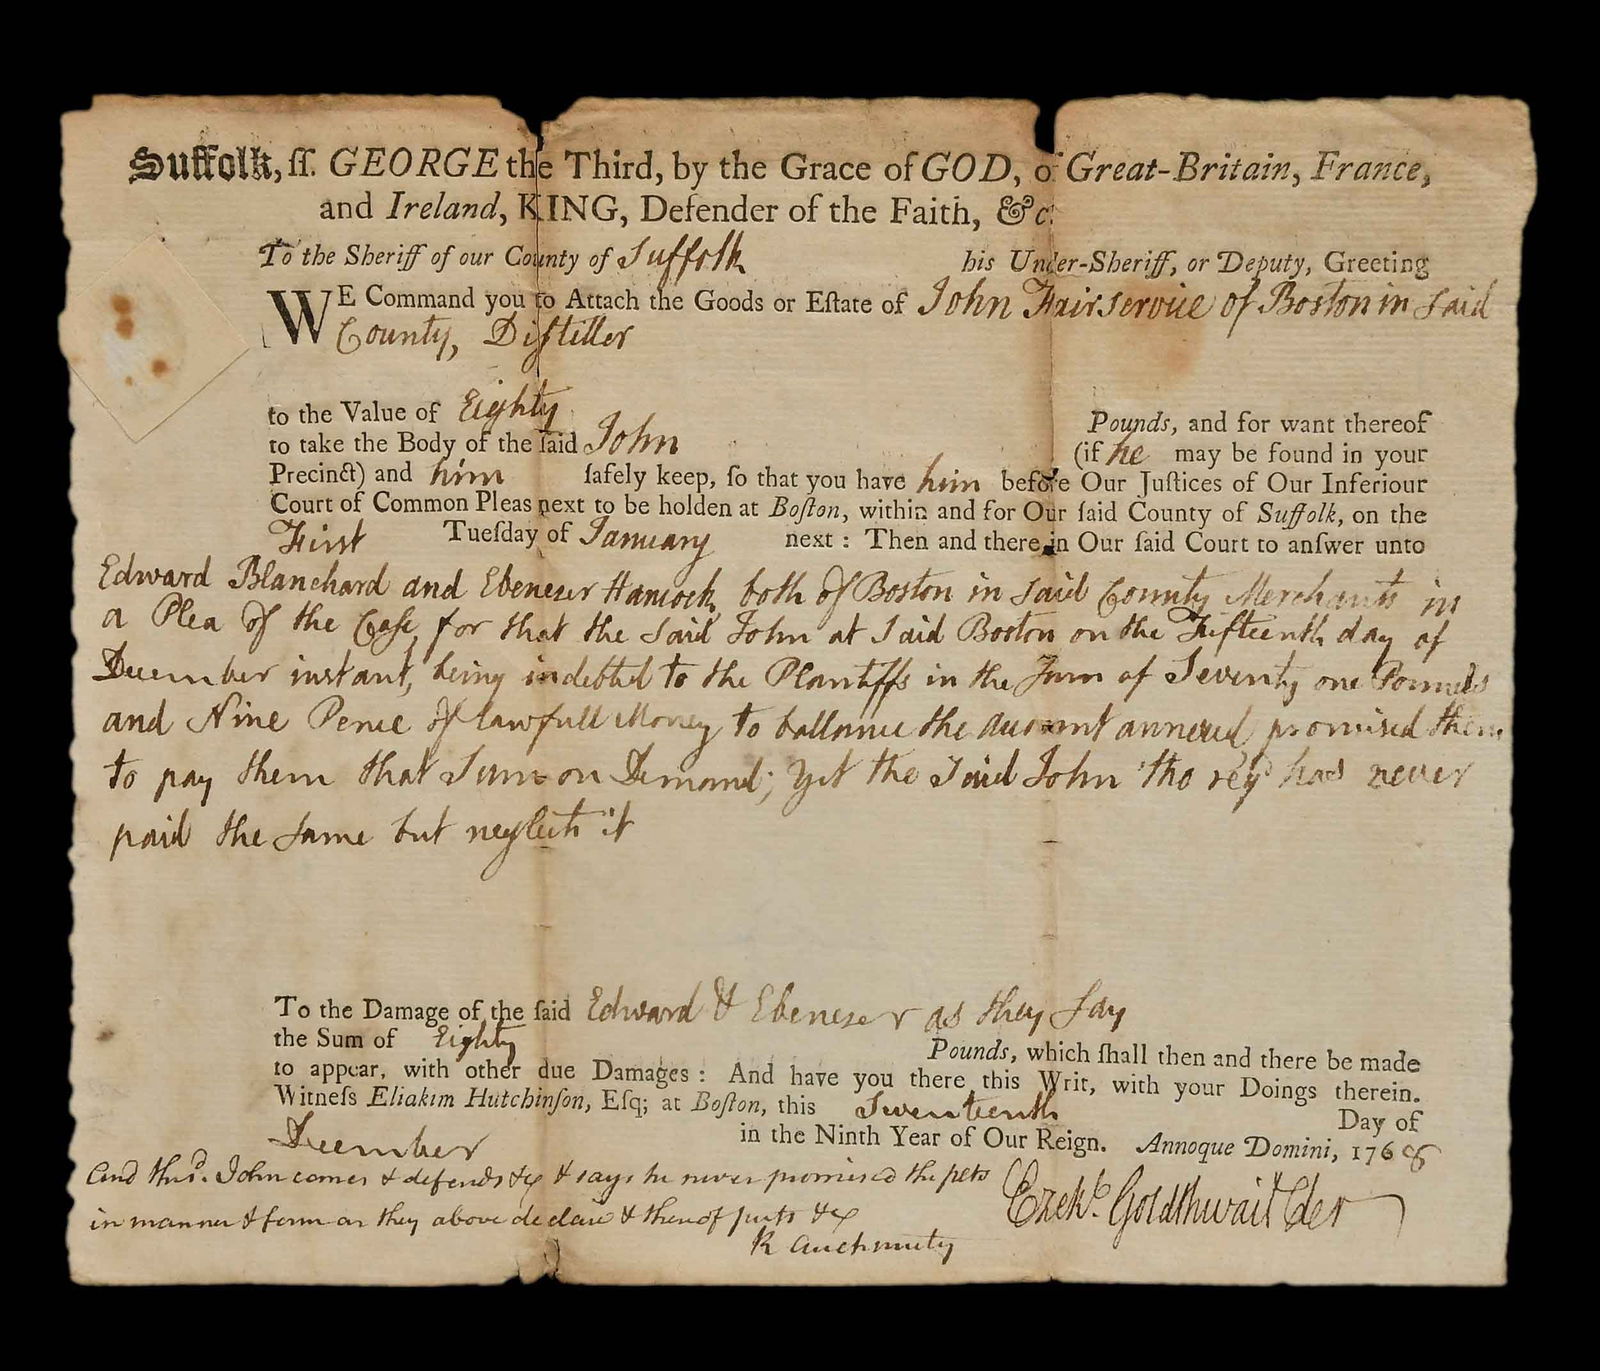 Suffolk, ſſ. GEORGE the Third, by the Grace of GOD, of Great-Britain, France,
and Ireland, KING, Defender of the Faith, &c.
To the Sheriff of our County of Suffolk his Under-Sheriff, or Deputy, Greeting
WE Command you to Attach the Goods or Eſtate of John Fairservice of Boston in said
County, Distiller
to the Value of Eighty Pounds, and for want thereof
to take the Body of the ſaid John (if he may be found in your
Precinct) and him ſafely keep, ſo that you have him before Our Juſtices of Our Inferiour
Court of Common Pleas next to be holden at Boſton, within and for Our ſaid County of Suffolk, on the
First Tueſday of January next : Then and there in Our ſaid Court to anſwer unto
Edward Blanchard and Ebenezer Hancock, both of Boston in said County Merchants in
a Plea of the Case, for that the said John at said Boston on the Fifteenth day of
December instant, being indebted to the Plantiffs in the Sum of Seventy one Pounds
and Nine Pence of lawfull Money to ballance the account annexed promised them
to pay them that Sum on Demand; Yet the said John tho reqd has never
paid the same but neglects it
To the Damage of the ſaid Edward & Ebenezer as they say
the Sum of Eighty Pounds, which ſhall then and there be made
to appear, with other due Damages : And have you there this Writ, with your Doings therein.
Witneſs Eliakim Hutchinſon, Eſq; at Boſton, this Twentienth Day of
December in the Ninth Year of Our Reign. Annoque Domini, 1768
And the sd. John comes & defends &c & says he never promised the plts
in manner & form as they above declare & thereof puts &c
R Auchmuty
Ezekl. Goldthwait Cler